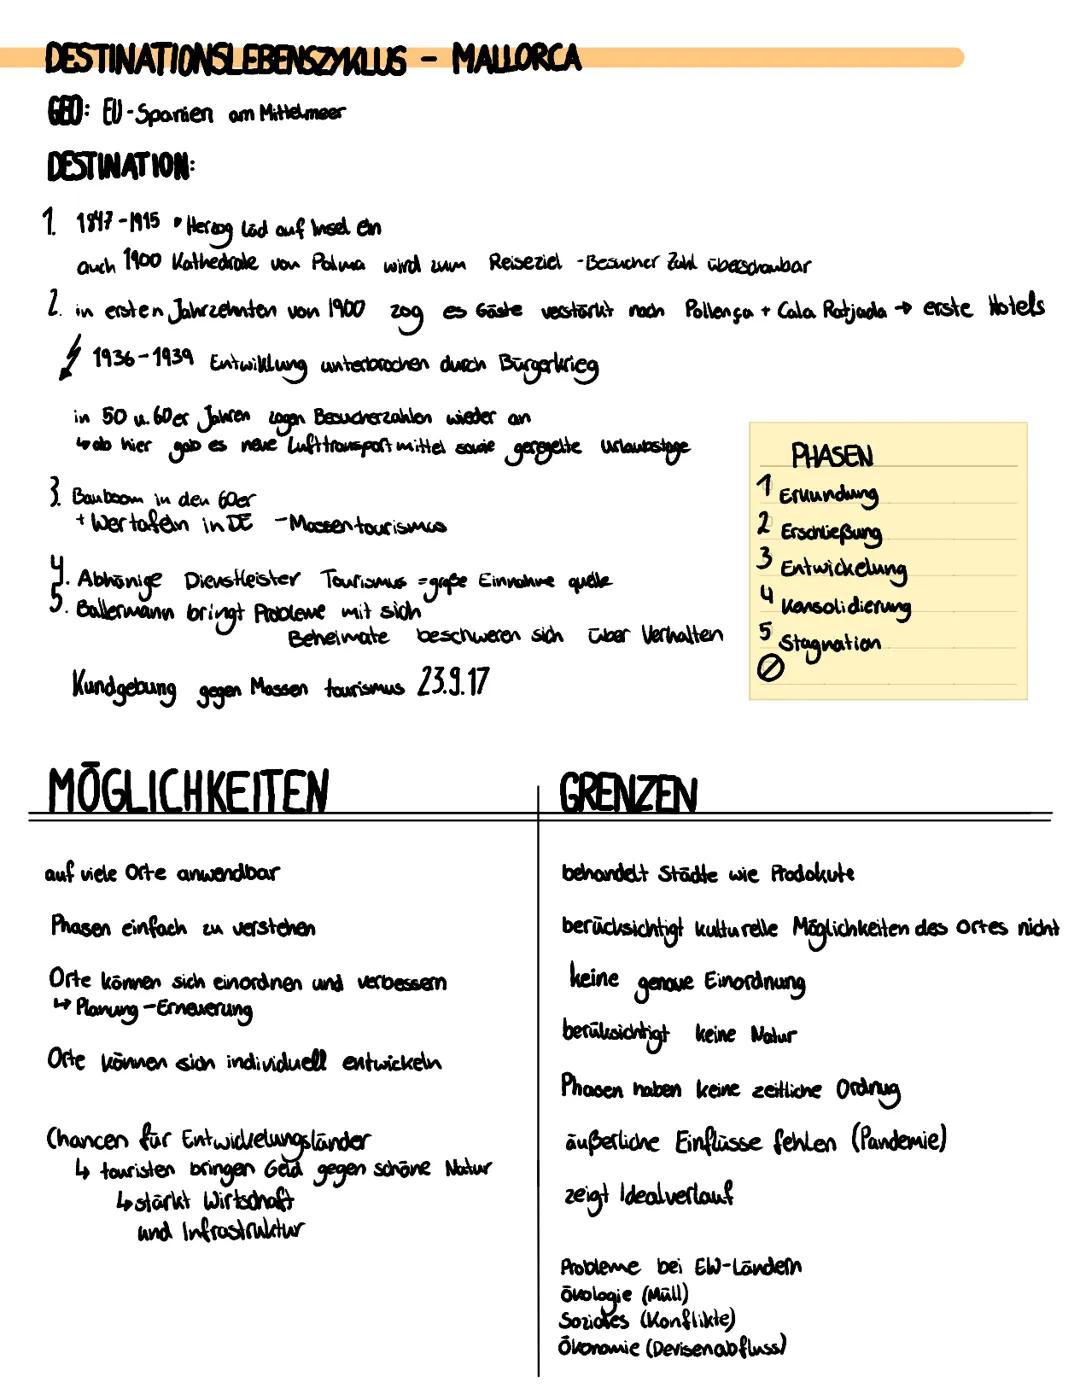 DESTINATIONSLEBENSZYKLUS - MALLORCA
GEO: EU-Spanien am Mittelmeer
DESTINATION:
1. 1847-1915 • Herzog läd auf Insel ein
auch 1900 Kathedrale von Palma wird zum Reiseziel - Besucher Zahl überschaubar
2. in ersten Jahrzehnten von 1900 zog es Gäste verstärkt nach Pollença + Cala Ratjada → erste Hotels
1936-1939 Entwiklung unterbrochen durch Bürgerkrieg
in 50 u. 60er Jahren zogen Besucherzahlen wieder an
↳ ab hier gab es neue Lufttransportmittel sowie geregelte Urlaubstage
3. Bauboom in den 60er
+ Wertafeln in DE - Massentourismus
4. Abhänige Dienstleister Tourismus = große Einnahme quelle
5. Ballermann bringt Probleme mit sich
Beheimate beschweren sich über Verhalten
Kundgebung gegen Massen tourismus 23.9.17
PHASEN
1 Erkundung
2 Erschließung
3 Entwickelung
4 Konsolidierung
5 Stagnation
MÖGLICHKEITEN
auf viele Orte anwendbar
Phasen einfach zu verstehen
Orte können sich einordnen und verbessern
↳ Planung - Erneuerung
Orte können sich individuell entwickeln
Chancen für Entwickelungsländer
↳ touristen bringen Geld gegen schöne Natur
↳ stärkt Wirtschaft
und Infrastruktur
GRENZEN
behandelt Städte wie Prodokute
berücksichtigt kulturelle Möglichkeiten des Ortes nicht
keine genaue Einordnung
berüksichtigt keine Natur
Phasen haben keine zeitliche Ordnug
äußerliche Einflüsse fehlen (Pandemie)
zeigt Idealverlauf
Probleme bei EW-Ländern
Ökologie (Müll)
Soziales (Konflikte)
Ökonomie (Devisenabfluss)